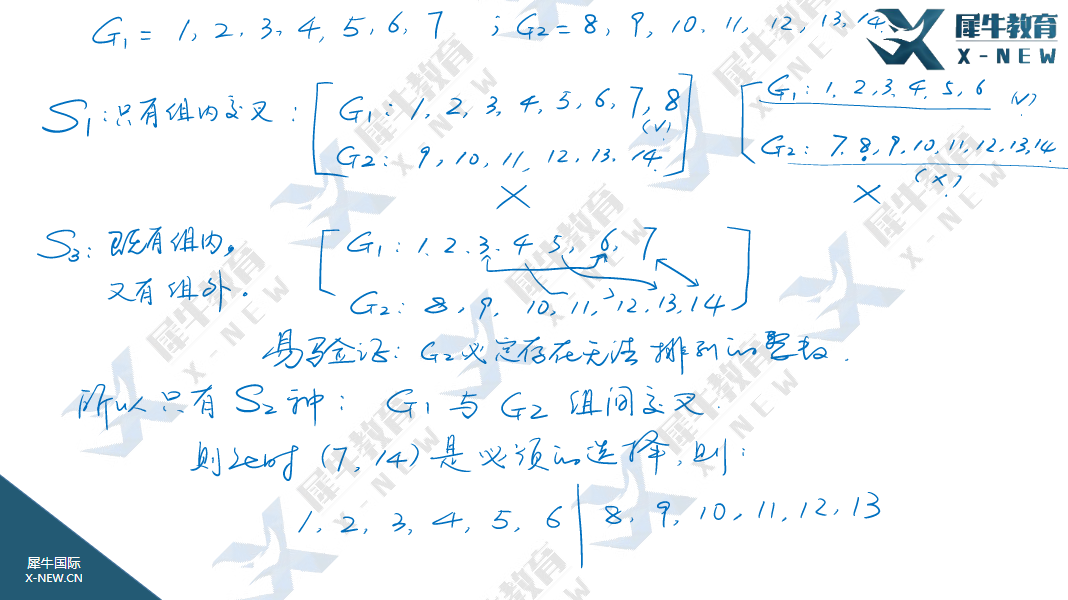 G1 = 1, 2, 3, 4, 5, 6, 7 ; G2 = 8, 9, 10, 11, 12, 13, 14
犀牛教育
X-NEW
S1: 只有组内交叉: G1: 1, 2, 3, 4, 5, 6, 7, 8 (√)
G2: 9, 10, 11, 12, 13, 14
×
G1: 1, 2, 3, 4, 5, 6 (√)
G2: 7, 8, 9, 10, 11, 12, 13, 14
(×)
×
S3: 既有组内,
又有组外.
G1: 1, 2, 3, 4, 5, 6, 7
G2: 8, 9, 10, 11, 12, 13, 14
易验证: G2必定存在无法排列的整数.
所以只有S2种: G1与G2组间交叉.
则此时 (7, 14) 是必须的选择, 则:
1, 2, 3, 4, 5, 6 | 8, 9, 10, 11, 12, 13
犀牛国际
X-NEW.CN